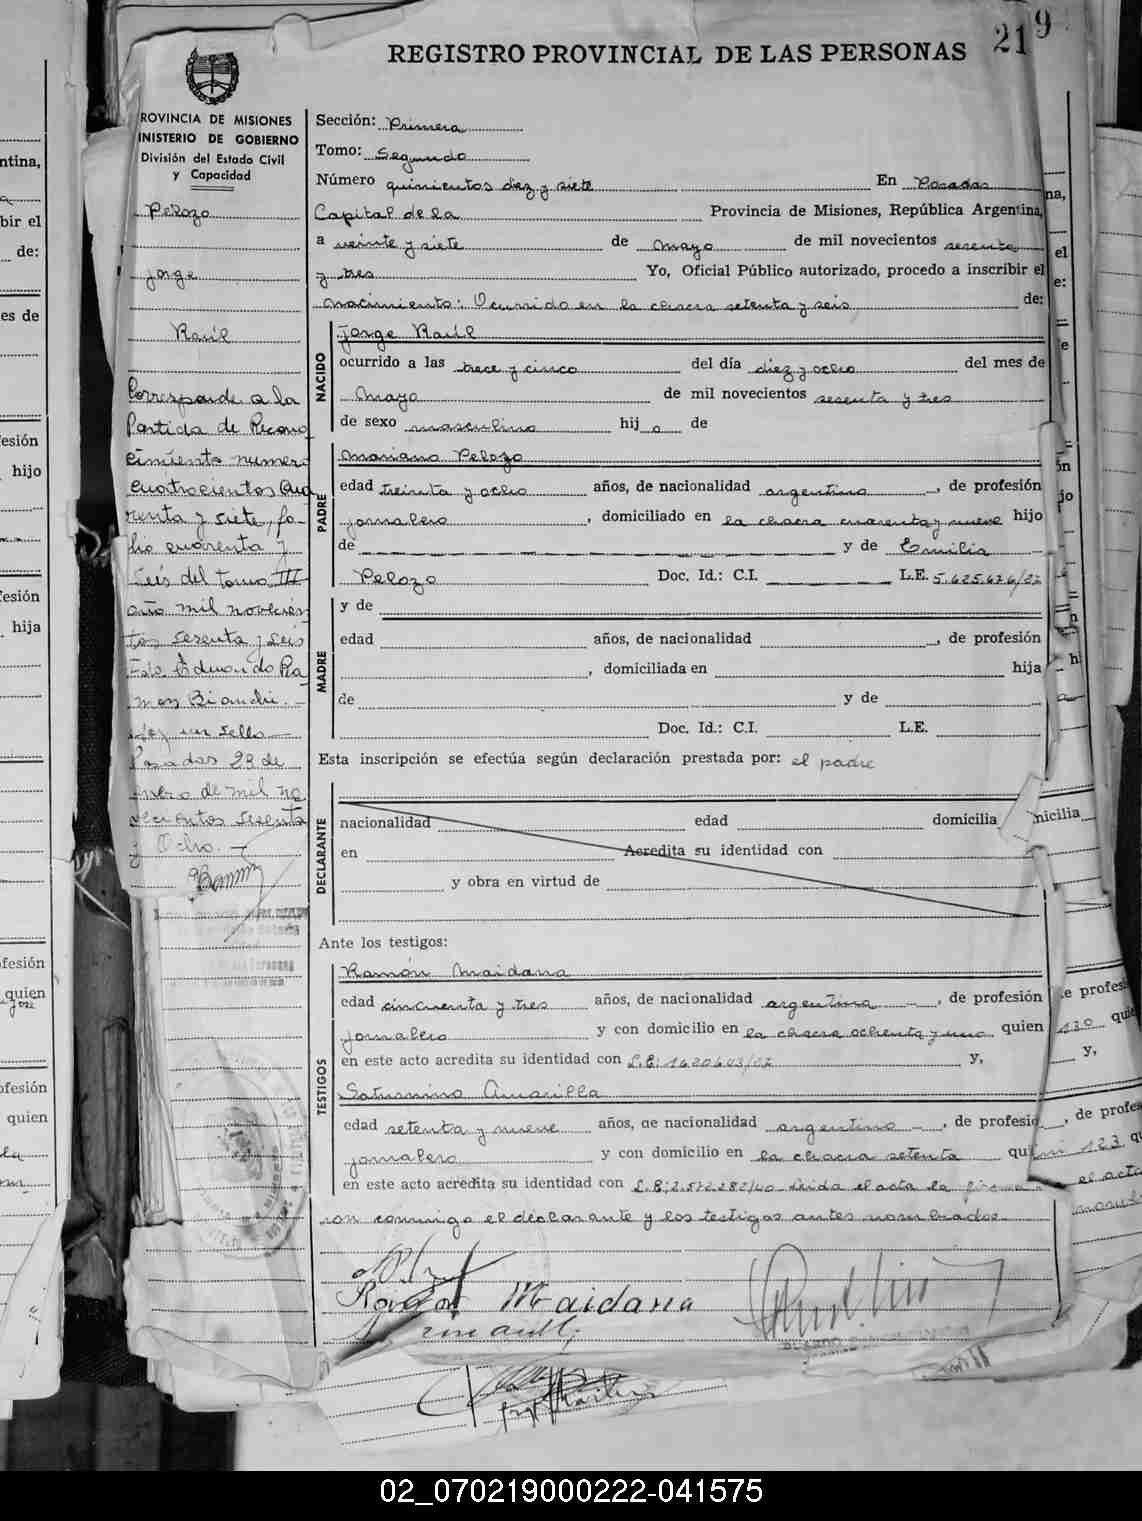 219
REGISTRO PROVINCIAL DE LAS PERSONAS
ROVINCIA DE MISIONES
INISTERIO DE GOBIERNO
División del Estado Civil
y Capacidad
Pelozo
Jorge
Raúl
Corresponde a la
Partida de Recono
cimiento numero
cuatrocientos cua
renta y siete, fo-
lio cuarenta y
seis del tomo III
año mil novecien
tos sesenta y seis
Fdo. Eduardo Ra
mos Bianchi. -
Hay un sello -
Posadas 23 de
enero de mil no
vecientos sesenta
y Ocho. -
Sección: Primera
Tomo: Segundo
Número quinientos diez y siete En Posadas
Capital de la Provincia de Misiones, República Argentina,
a veinte y siete de mayo de mil novecientos sesenta
y tres Yo, Oficial Público autorizado, procedo a inscribir el
nacimiento: Ocurrido en la chacra setenta y seis de:
NACIDO
Jorge Raúl
ocurrido a las trece y cinco del día diez y ocho del mes de
mayo de mil novecientos sesenta y tres
de sexo masculino hij o de
PADRE
Mariano Pelozo
edad treinta y ocho años, de nacionalidad argentino, de profesión
jornalero, domiciliado en la chacra cuarenta y nueve hijo
de y de Emilia
Pelozo Doc. Id.: C.I. L.E. 5.625.626/27
MADRE
y de
edad años, de nacionalidad , de profesión
, domiciliada en hija
de y de
Doc. Id.: C.I. L.E.
Esta inscripción se efectúa según declaración prestada por: el padre
DECLARANTE
nacionalidad edad domicilia
en Acredita su identidad con
y obra en virtud de
Ante los testigos:
TESTIGOS
Ramón Maidana
edad cincuenta y tres años, de nacionalidad argentina -, de profesión
jornalero y con domicilio en la chacra ochenta y uno quien
en este acto acredita su identidad con L.E: 1620643/27 y,
Saturnino Amarilla
edad setenta y nueve años, de nacionalidad argentino -, de profesió
jornalero y con domicilio en la chacra setenta qu
en este acto acredita su identidad con L.E; 2.572.282/40 Leida el acta la firma
ron conmigo el declarante y los testigos antes nombrados.
Ramón Maidana
02_070219000222-041575